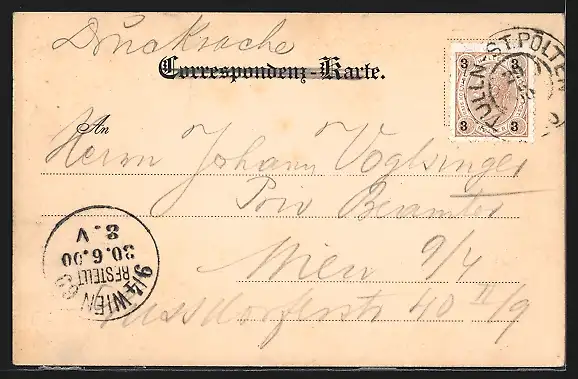 Drucksache
Correspondenz-Karte.
3 3
3 3
TULLN ST. PÖLTEN
An
Herrn Johann Voglsinger
Priv Beamter
Wien 9/4
Nussdorferstr 40 II/9
9/4 WIEN 68
BESTELLT
30.6.00
8.V